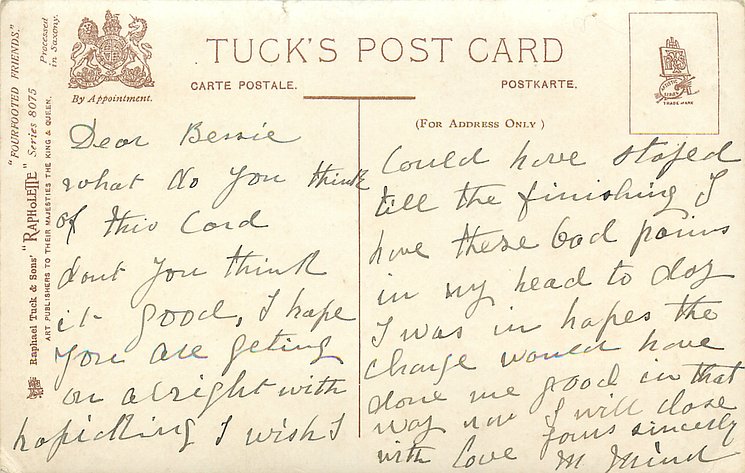 "FOURFOOTED FRIENDS."
Processed
in Saxony.
Raphael Tuck & Sons' "RAPHOLETTE" Series 8075
ART PUBLISHERS TO THEIR MAJESTIES THE KING & QUEEN.
By Appointment.
TUCK'S POST CARD
CARTE POSTALE.
POSTKARTE.
(FOR ADDRESS ONLY)
ARTISTIC
SERIES
TRADE MARK
Dear Bessie
what do you think
of this Card
dont you think
it good, I hope
you are geting
on alright with
hopicking I wish I
Could have stojed
till the finishing I
have these bad pains
in my head to day
I was in hopes the
change would have
done me good in that
way now I will close
with love yours sincerly
M